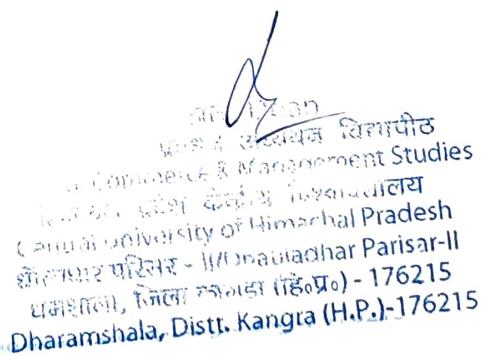 अध्ययन विद्यापीठ
Commerce & Management Studies
प्रदेश केन्द्रीय विश्वविद्यालय
Central University of Himachal Pradesh
धौलाधार परिसर - II/Dhauladhar Parisar-II
धर्मशाला, जिला कांगड़ा (हि०प्र०) - 176215
Dharamshala, Distt. Kangra (H.P.)-176215